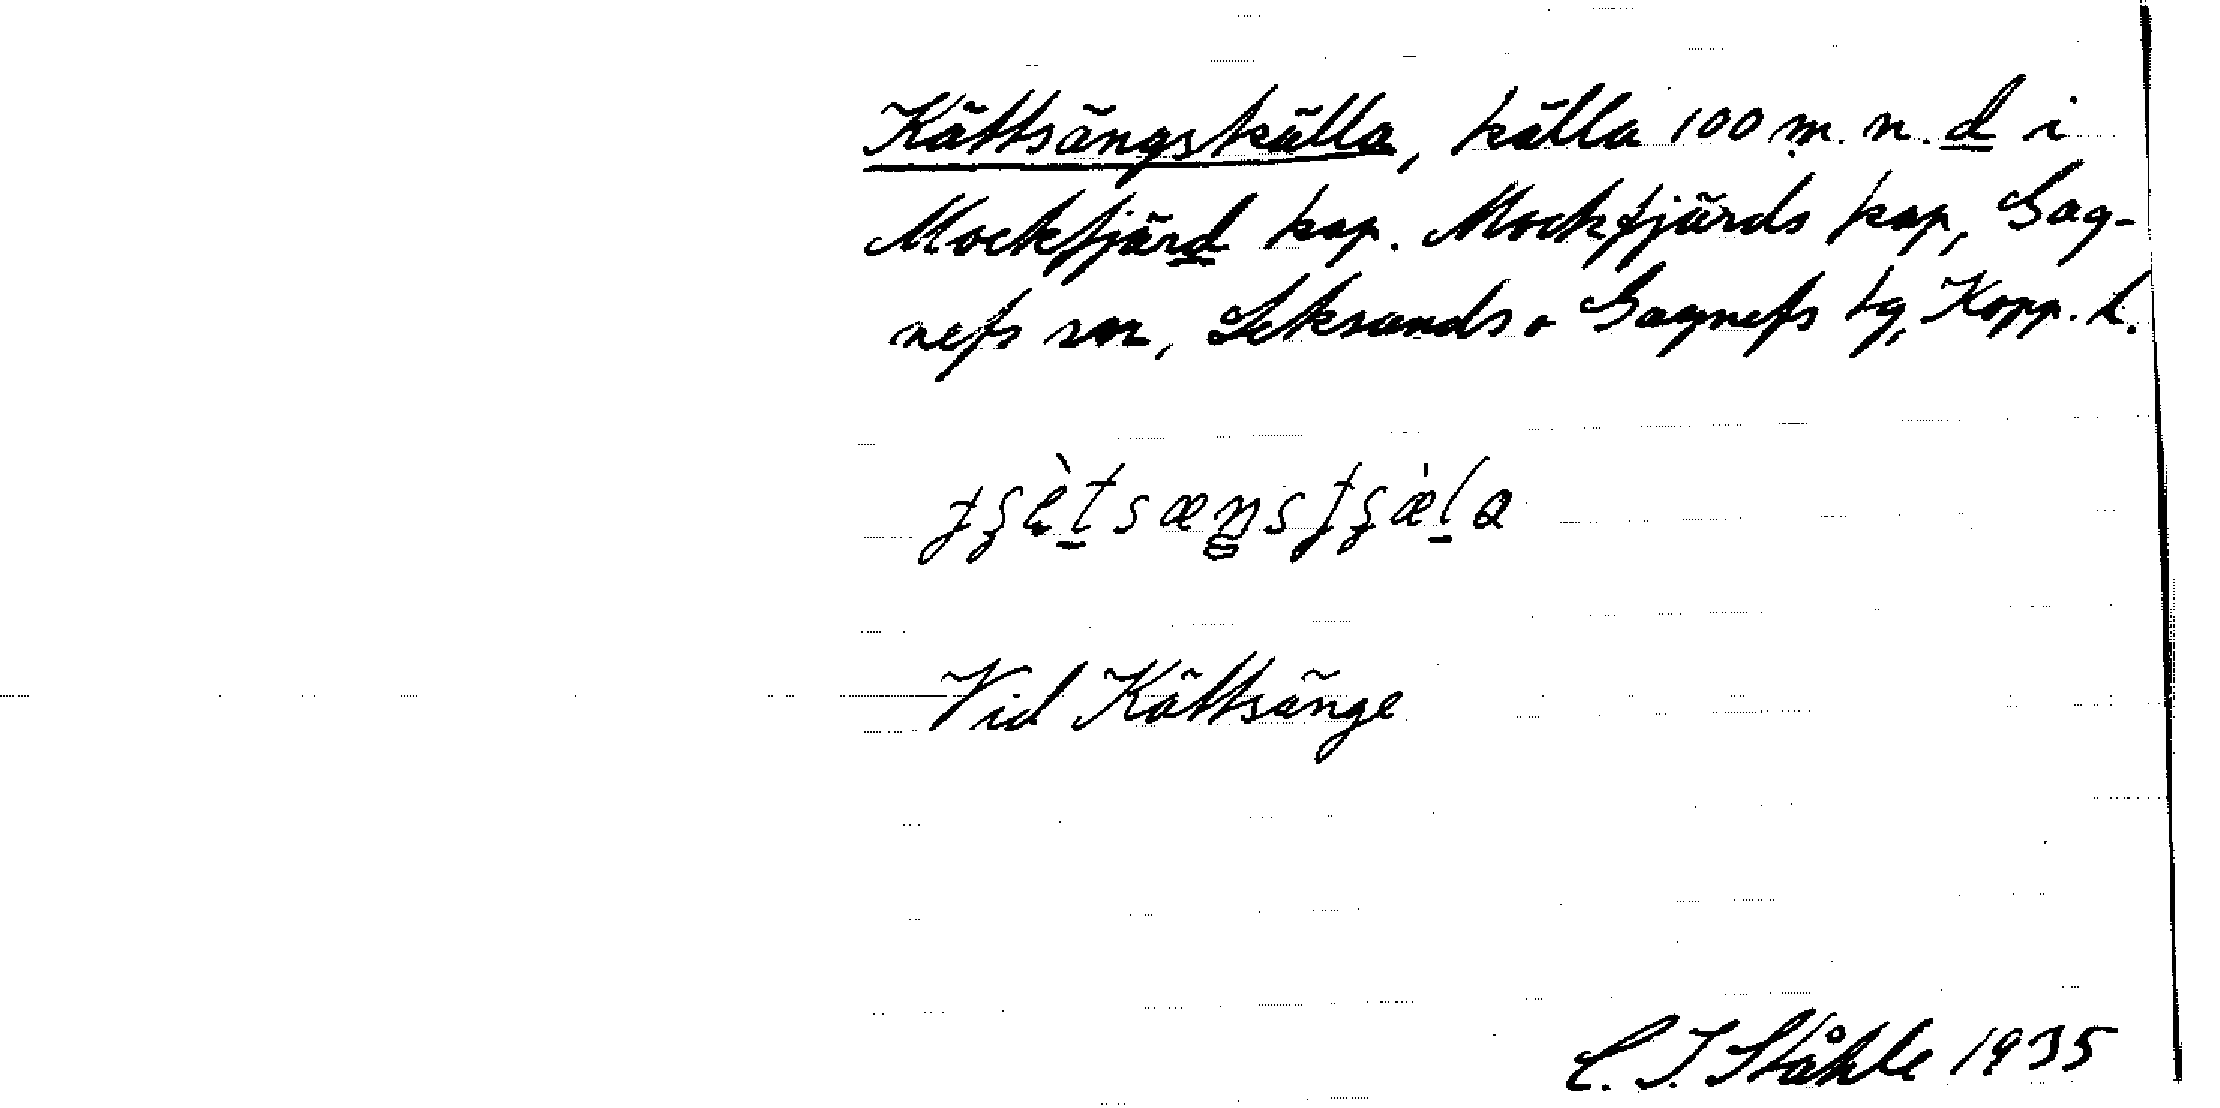 Kättsängskälla, källa 100 m. n. d i
Mockfjärd kap. Mockfjärds kap, Gag-
nefs sn, Leksands o Gagnefs tg, Kopp. l.
Vid Kättsänge
C. I. Ståhle 1935